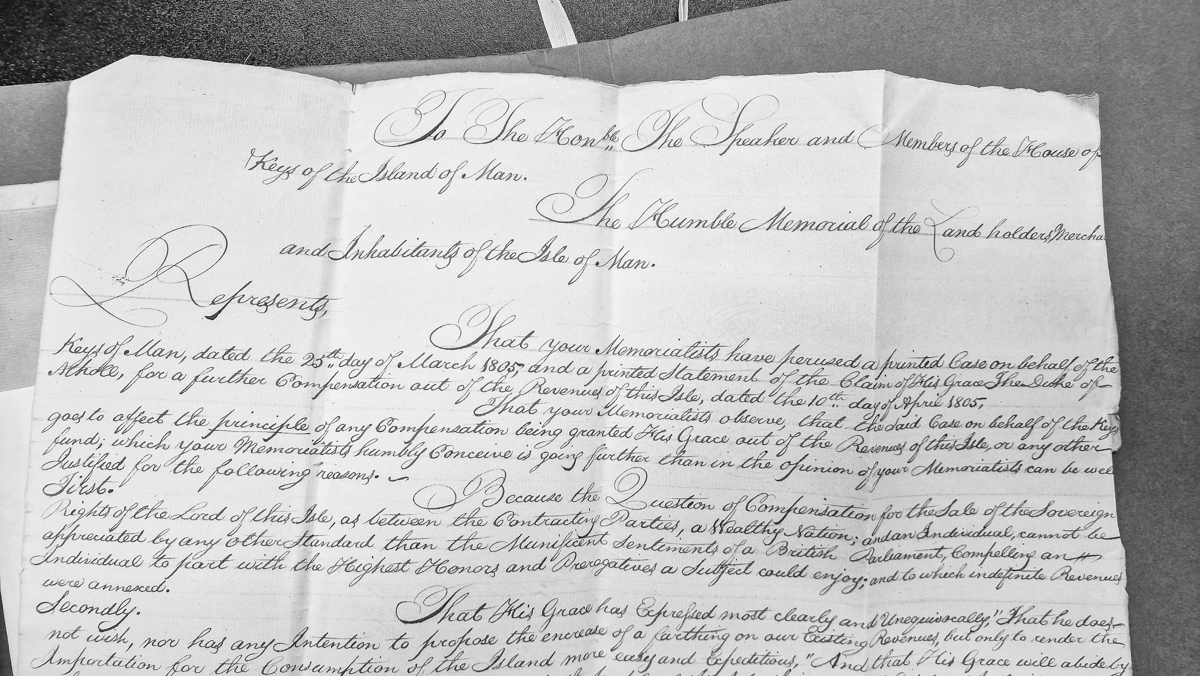 To The Honble. The Speaker and Members of the House of
Keys of the Island of Man.
The Humble Memorial of the Land holders, Mercha
and Inhabitants of the Isle of Man.
Represents,
That your Memorialists have perused a printed Case on behalf of the
Keys of Man, dated the 25th. day of March 1805, and a printed Statement of the Claim of His Grace The Duke of
Atholl, for a further Compensation out of the Revenues of this Isle, dated the 10th. day of April 1805.
That your Memorialists observe, that the said Case on behalf of the Keys
goes to affect the principle of any Compensation being granted His Grace out of the Revenues of this Isle, or any other
fund; which your Memorialists humbly Conceive is going further than in the opinion of your Memorialists can be well
Justified for the following reasons.
First. Because the Question of Compensation for the Sale of the Sovereign
Rights of the Lord of this Isle, as between the Contracting Parties, a Wealthy Nation, and an Individual, cannot be
appreciated by any other Standard than the Munificent Sentiments of a British Parliament, Compelling an
Individual to part with the Highest Honors and Prerogatives a Subject could enjoy; and to which indefinite Revenues
were annexed.
Secondly. That His Grace has Expressed most clearly and Unequivocally, "That he does
not wish, nor has any Intention to propose the encrease of a farthing on our Existing Revenues, but only to render the
Importation for the Consumption of the Island more easy and Expeditious," And that His Grace will abide by